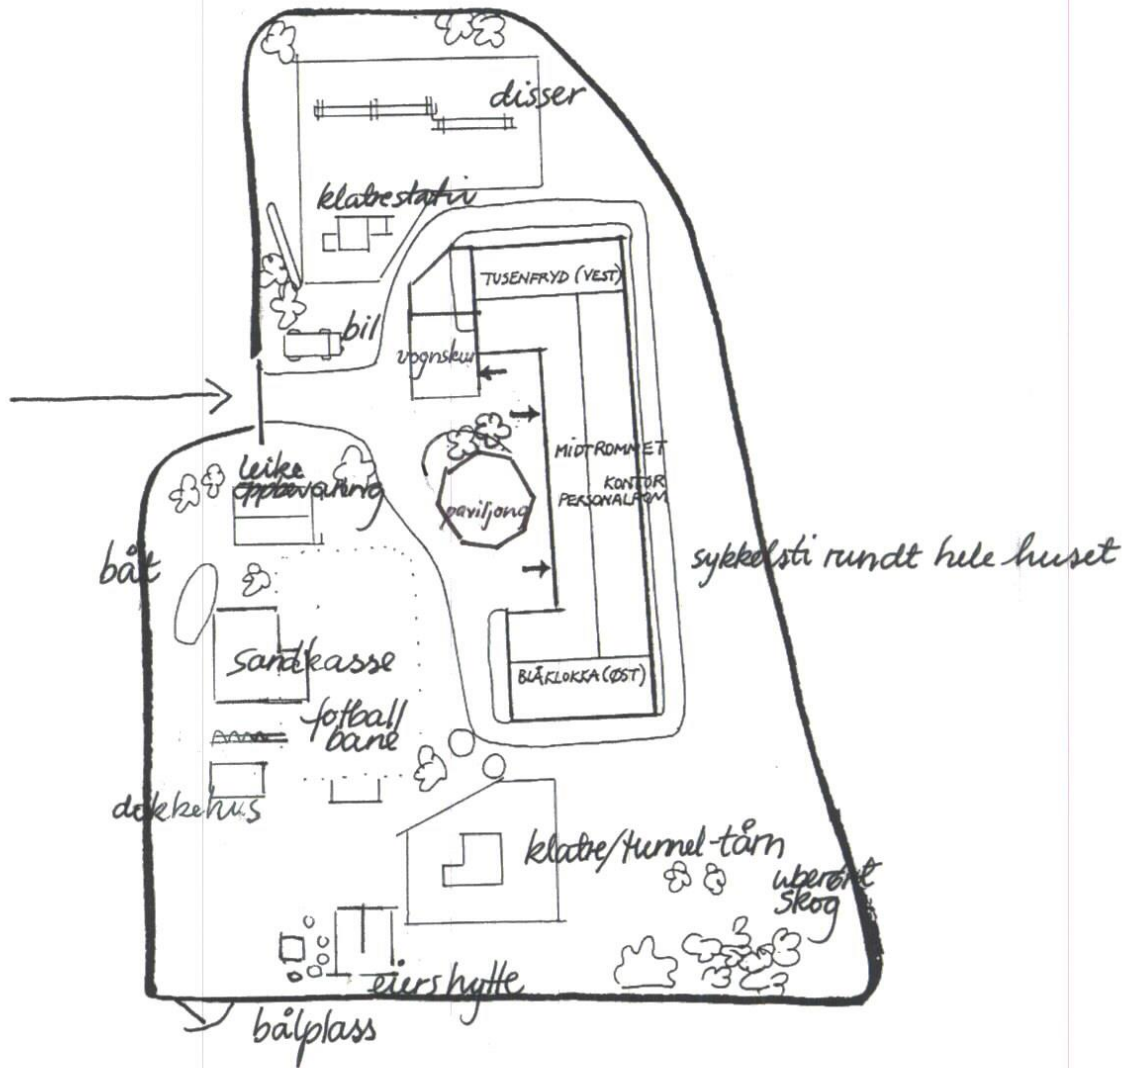 disser
klatrestativ
TUSENFRYD (VEST)
bil
vognskur
MIDTROMMET
KONTOR
PERSONALROM
leike
oppbevaring
paviljong
båt
sykkelsti rundt hele huset
sandkasse
BLÅKLOKKA (ØST)
fotball
bane
dokkehus
klatre/tunnel-tårn
uberørt
skog
eiershytte
bålplass